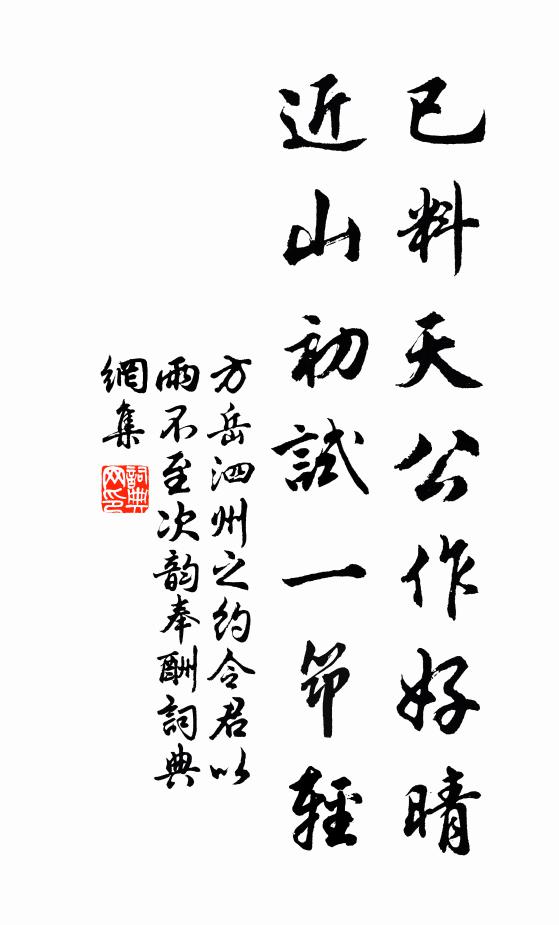 已料天公作好晴
近山初試一筇輕
方岳泗州之約令君以
雨不至次韵奉酬詞典
網集
詞典
网印